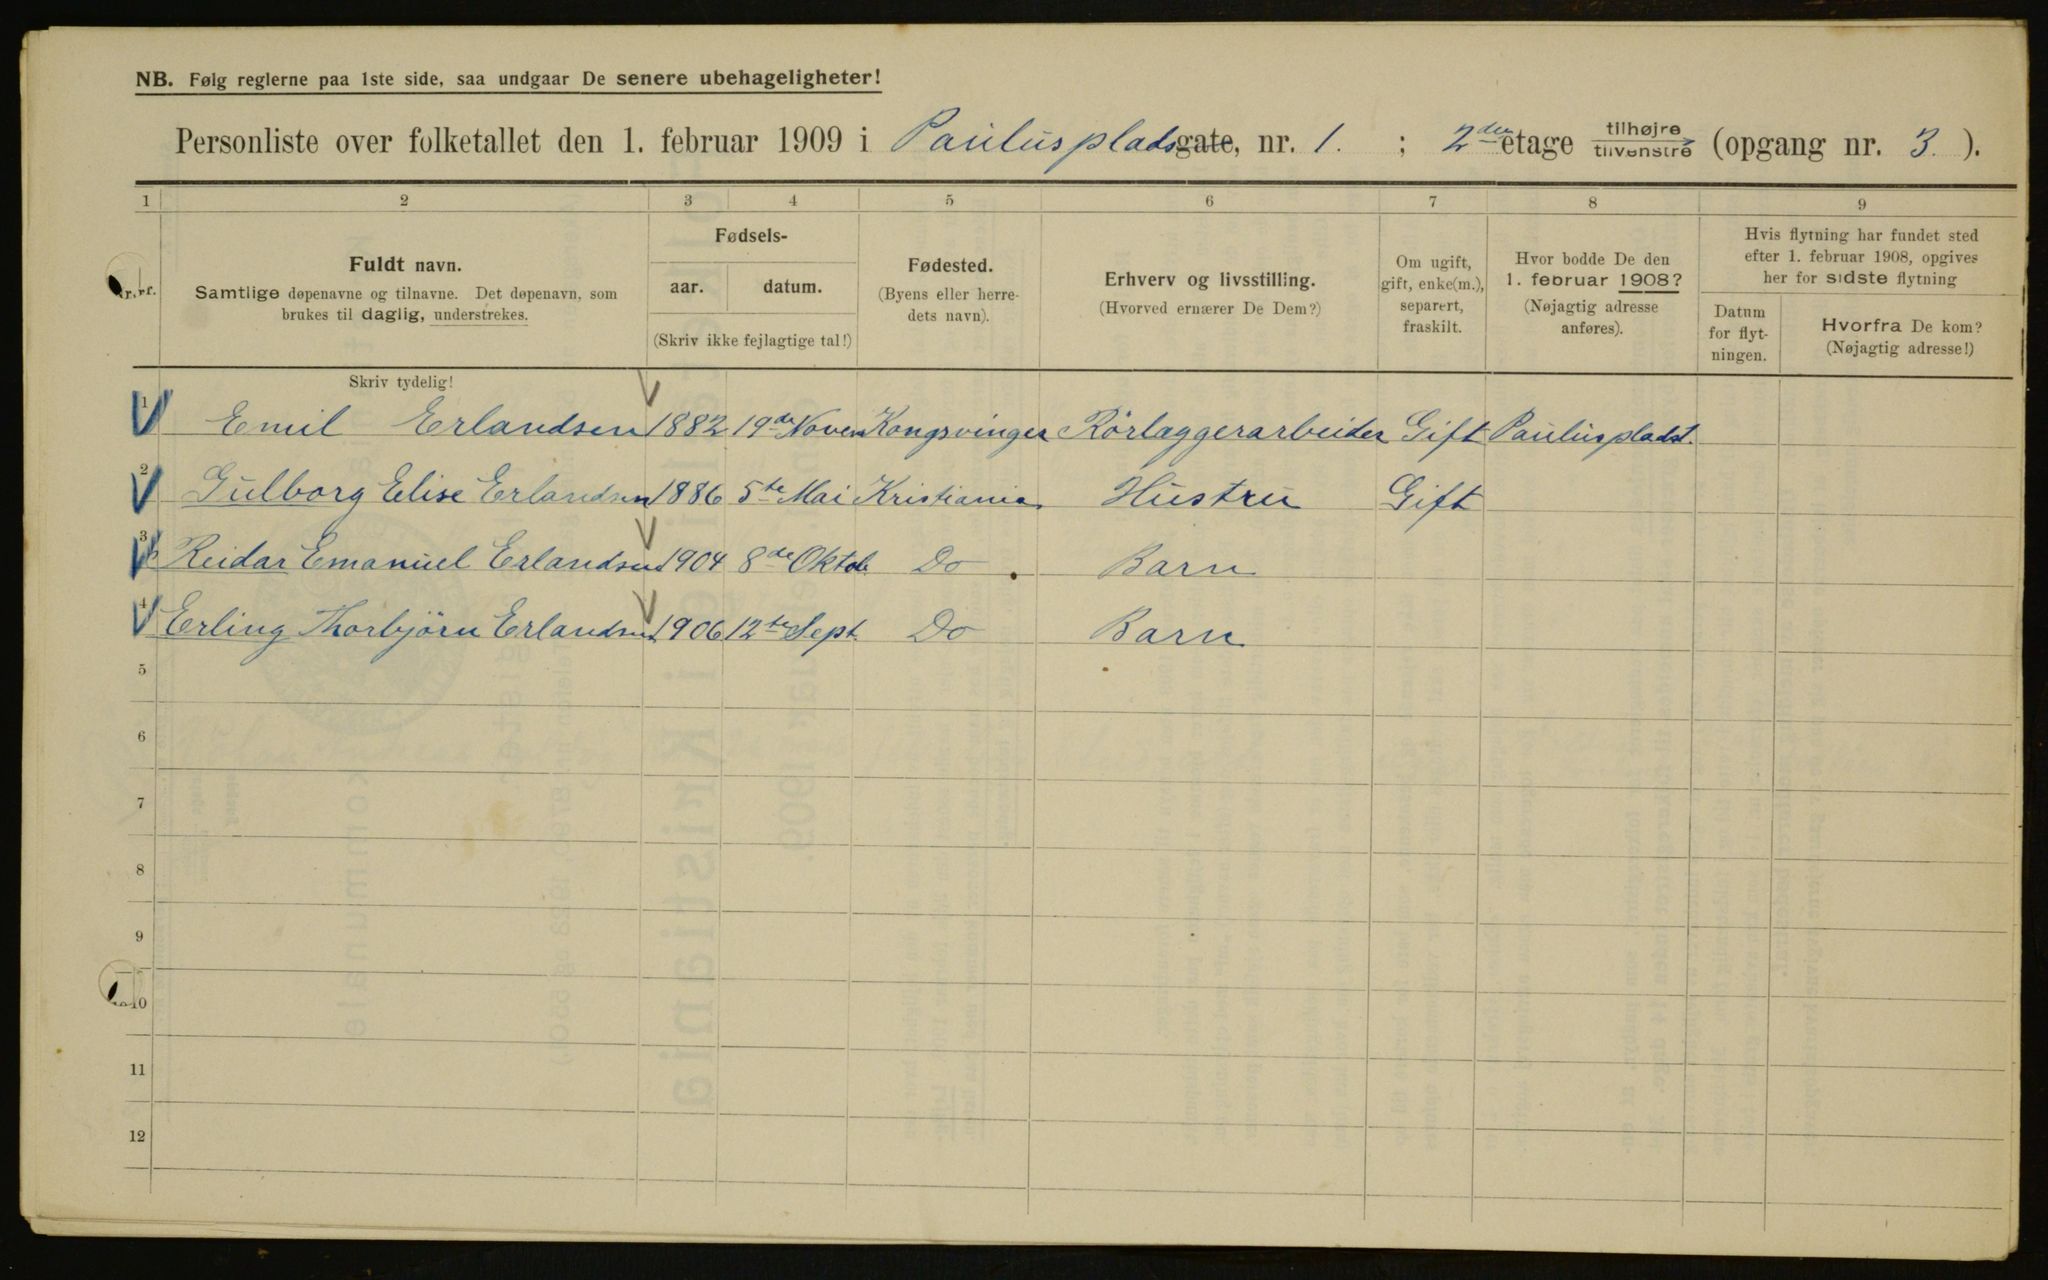 NB. Følg reglerne paa 1ste side, saa undgaar De senere ubehageligheter!
Personliste over folketallet den 1. februar 1909 i Pauluspladsgate, nr. 1. ; 2den etage tilhøjre tilvenstre (opgang nr. 3. ).
1 2 3 4 5 6 7 8 9
Nr.
Fuldt navn.
Samtlige døpenavne og tilnavne. Det døpenavn, som
brukes til daglig, understrekes.
Skriv tydelig!
Fødsels-
aar. datum.
(Skriv ikke fejlagtige tal!)
Fødested.
(Byens eller herre-
dets navn).
Erhverv og livsstilling.
(Hvorved ernærer De Dem?)
Om ugift,
gift, enke(m.),
separert,
fraskilt.
Hvor bodde De den
1. februar 1908?
(Nøjagtig adresse
anføres).
Hvis flytning har fundet sted
efter 1. februar 1908, opgives
her for sidste flytning
Datum
for flyt-
ningen.
Hvorfra De kom?
(Nøjagtig adresse!)
1 Emil Erlandsen 1882 19de Novem Kongsvinger Rörlæggerarbeider Gift Pauluspladst.
2 Gulborg Elise Erlandsen 1886 5te Mai Kristiania Hustru Gift
3 Reidar Emanuel Erlandsen 1904 8de Oktob. Do Barn
4 Erling Thorbjörn Erlandsen 1906 12te Sept. Do Barn
5
6
7
8
9
10
11
12